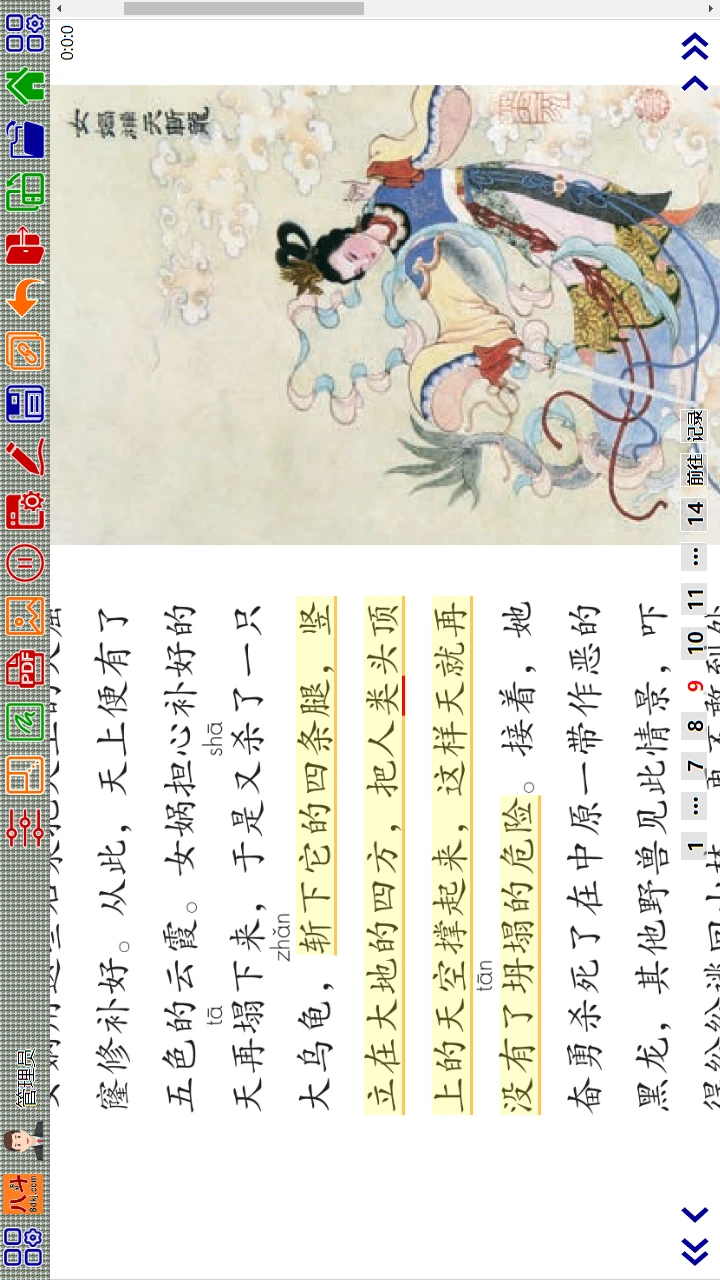 八斗 8dkj.com 管理员 PDF
0:0:0
窿修补好。从此，天上便有了
五色的云霞。女娲担心补好的
tā shā
天再塌下来，于是又杀了一只
zhǎn
大乌龟，斩下它的四条腿，竖
立在大地的四方，把人类头顶
上的天空撑起来，这样天就再
tān
没有了坍塌的危险。接着，她
奋勇杀死了在中原一带作恶的
黑龙，其他野兽见此情景，吓
1 ... 7 8 9 10 11 ... 14 前往 记录